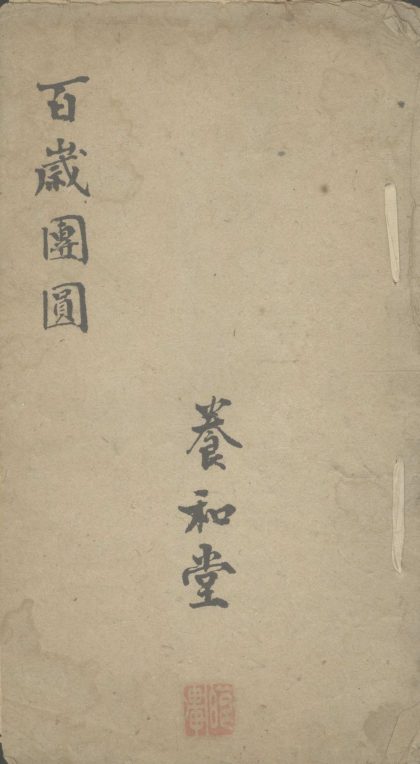 百歲團圓
養和堂